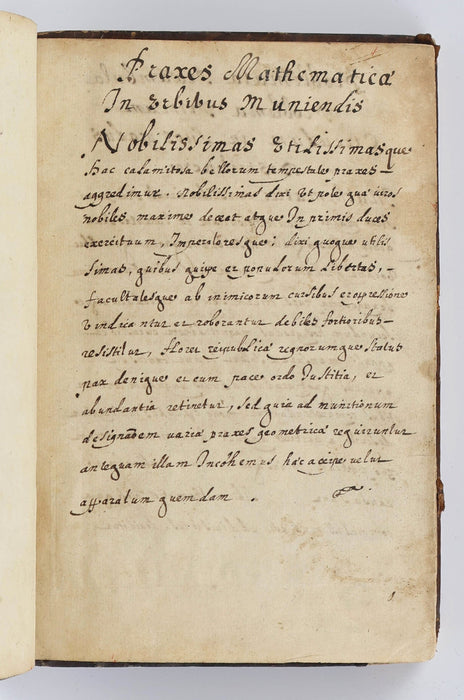 Praxes Mathematicæ
In vrbibus Muniendis
Nobilissimas vtilissimasque
hac calamitosa bellorum tempestate praxes
aggredimur. Nobilissimas dixi vt pote quæ viros
nobiles maxime deceat atque Inprimis duces
exercituum, Imperatoresque; dixi quoque utilis
simas, quibus quipe et populorum libertas,
facultatesque ab inimicorum cursibus et opressione
vindicantur et roborantur debiles fortioribus
resistitur, floret reipublicæ regnorumque status
pax denique et cum pace ordo Iustitia, et
abundantia retinetur, sed quia ad munitionum
designãdem variæ praxes geometricæ requiruntur
antequam illam Incohemus hæc accipe velut
apparatum quemdam .
1